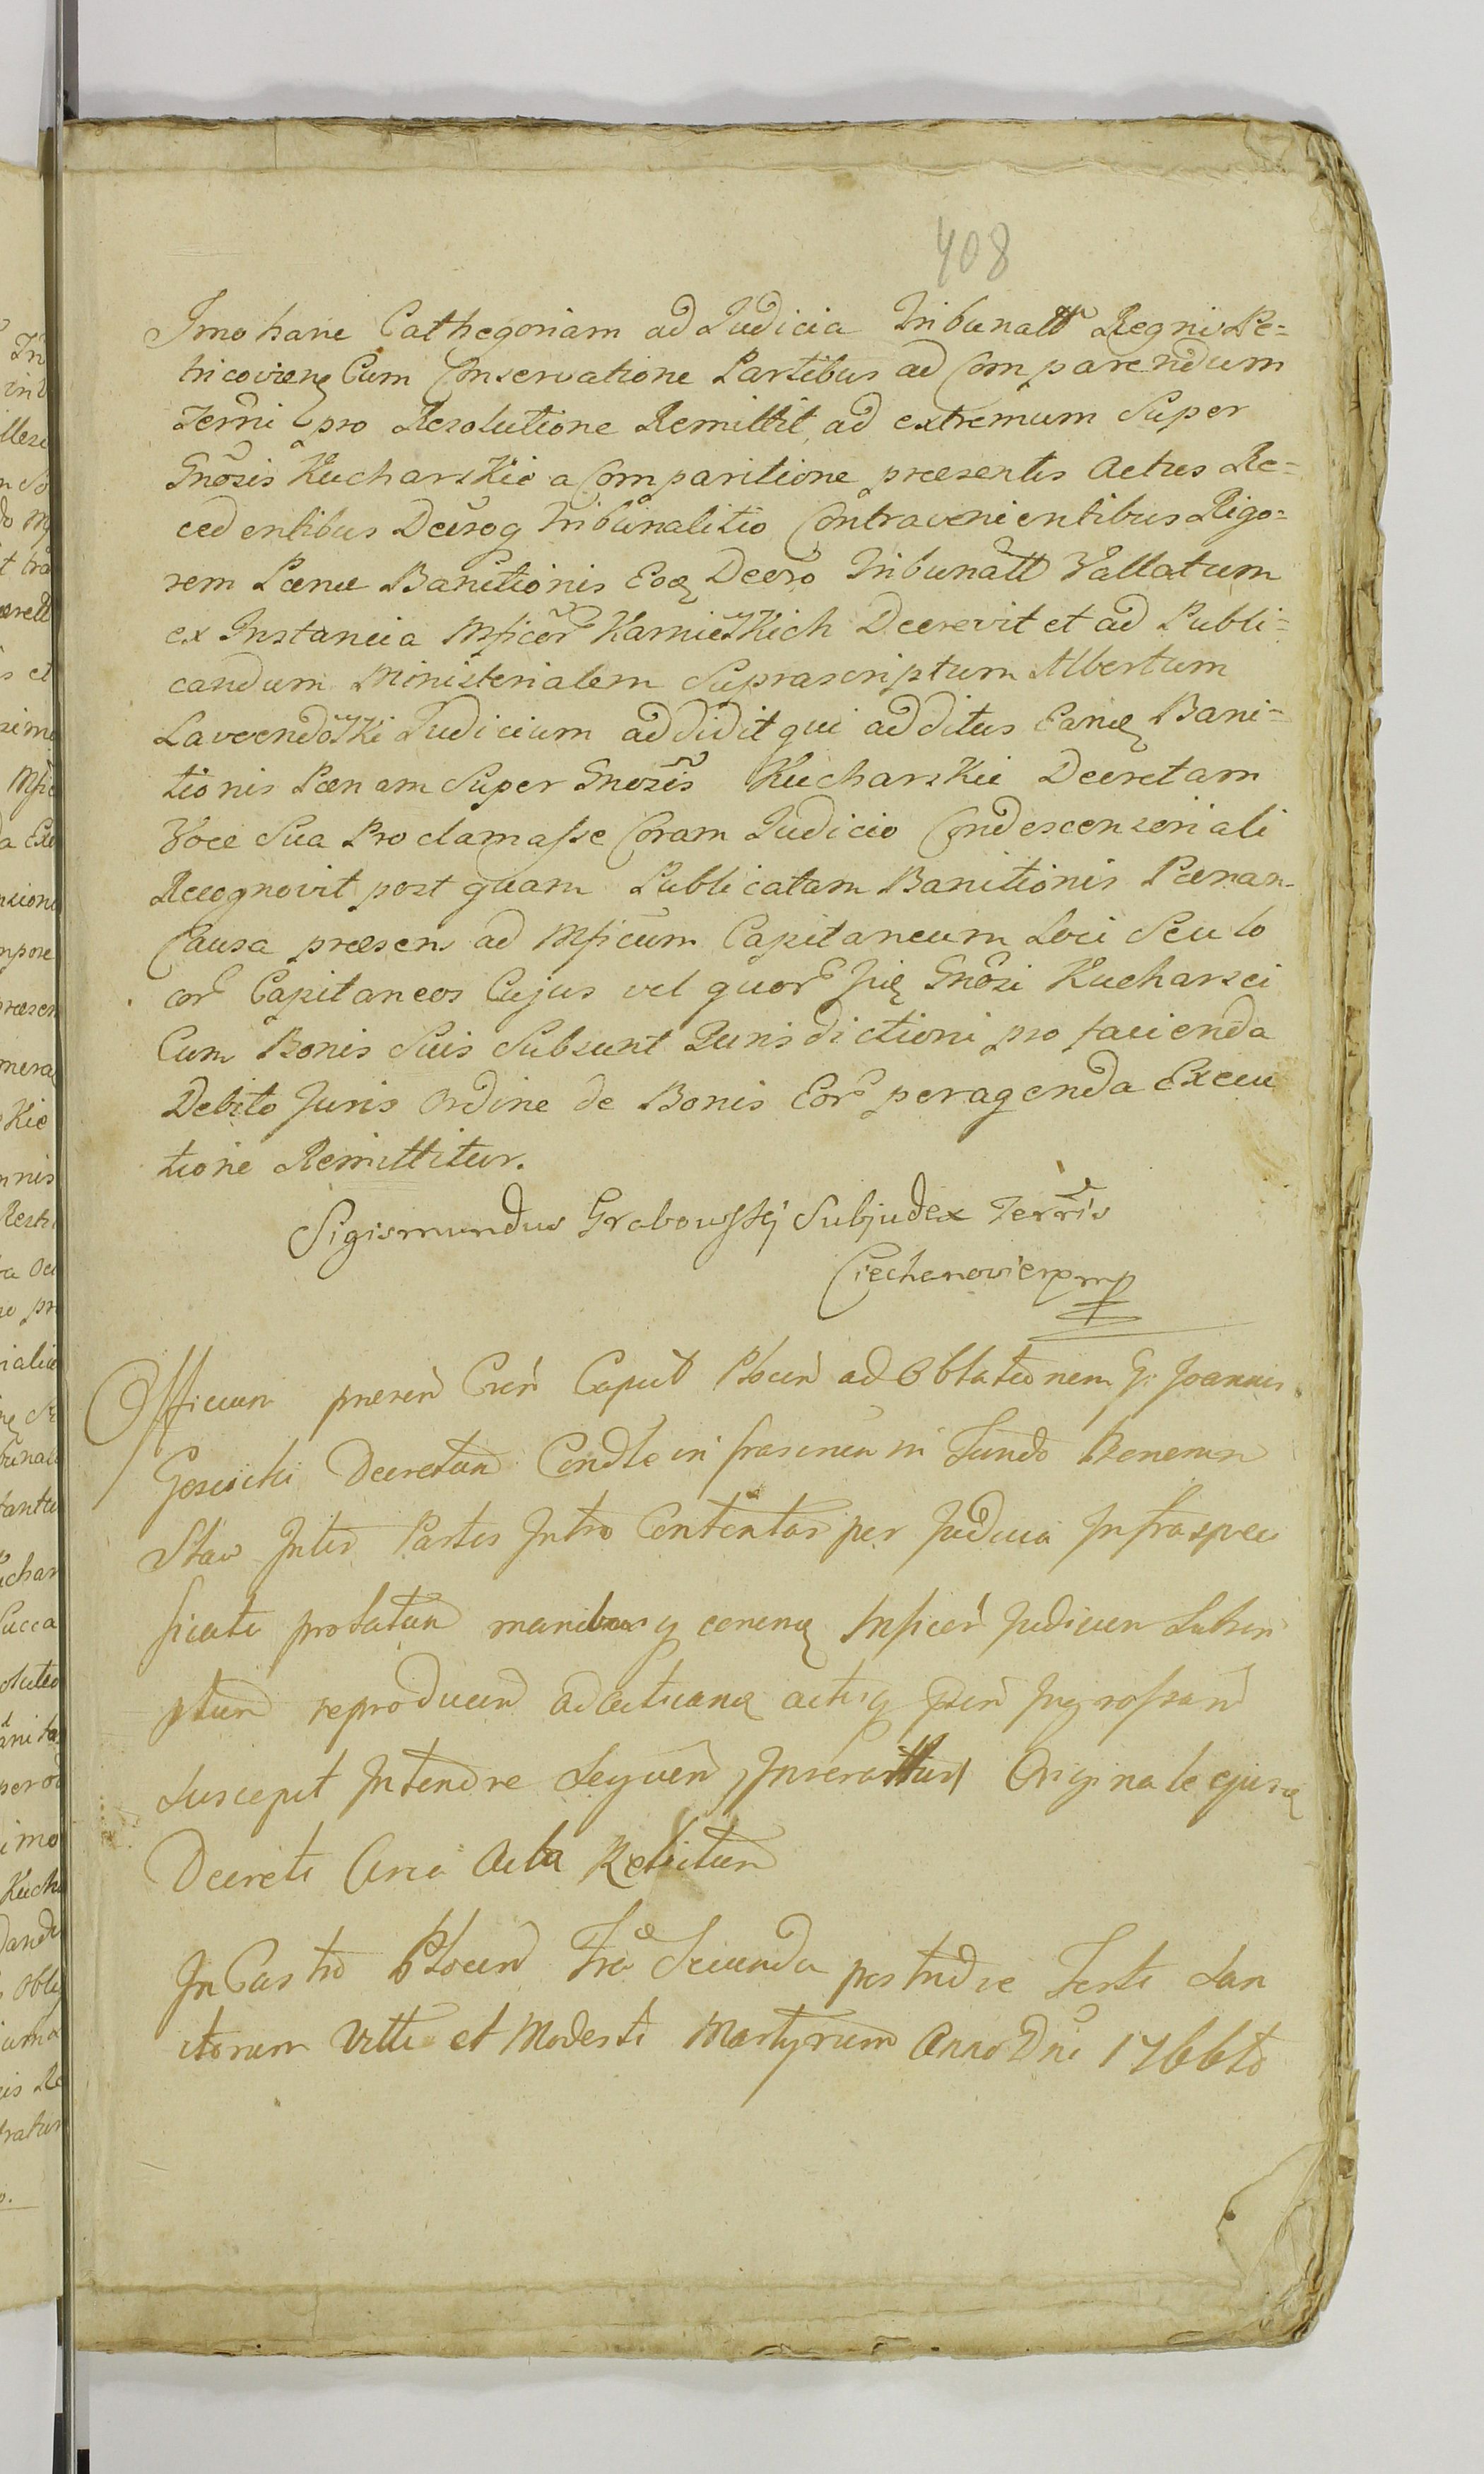 408
Imo hanc Cathegoriam ad Judicia Tribunall Regni Pe=
tricovien Cum Conservatione Partibus ad Comparendum
Termi pro Resolutione Remittit, ad extremum Super
Gnosis Kucharskie a Comparitione præsentis Actus Re=
cedentibus Decroq Tribunalitio Contravenientibus Rigo=
rem Pœnæ Banitionis Eoq Decro Tribunall Vallatum
ex Instancia Mficor Karnieskich Decrevit et ad Publi=
candum Ministerialem Suprascriptum Albertum
Lavendoski Judicium addidit qui additus Eanq Bani=
tionis Pœnam Super Gnosis Kucharskie Decretam
Voce Sua Proclamasse Coram Judicio Condescensoriali
Recognovit post quam Publicatam Banitionis Pœnam
Causa præsens ad Mficum Capitaneum Loci Seu lo
cor Capitaneos Cujus vel quor Gnosi Kucharsci
Cum Bonis Suis Subsunt Jurisdictioni pro facienda
Debito Juris Ordine de Bonis Eor peragenda Execu
tione Remittitur.
Sigismundus Grabowskj Subjudex Terris
Ciechanoviens mp
Officium presen Cren Caput Plocen ad Oblationem G: Joannis
Decretum Condle in frascrien in Fundo Bonorum
Staw Inter Partes Intro Contentas per Judicia Infraspeci
ficata prolatum manibusq Mficor Judicum Subscri
ptum reproducen ad acticanq actisq psen Ingrossan
suscepit Intendre Sequen, Inseratur Originale ejusq
Decreti Circa Acta Relictum
In Castro Plocen Fra Secunda postridie Festi San
ctorum Viti et Modesti Martyrum Anno Dni 1766to